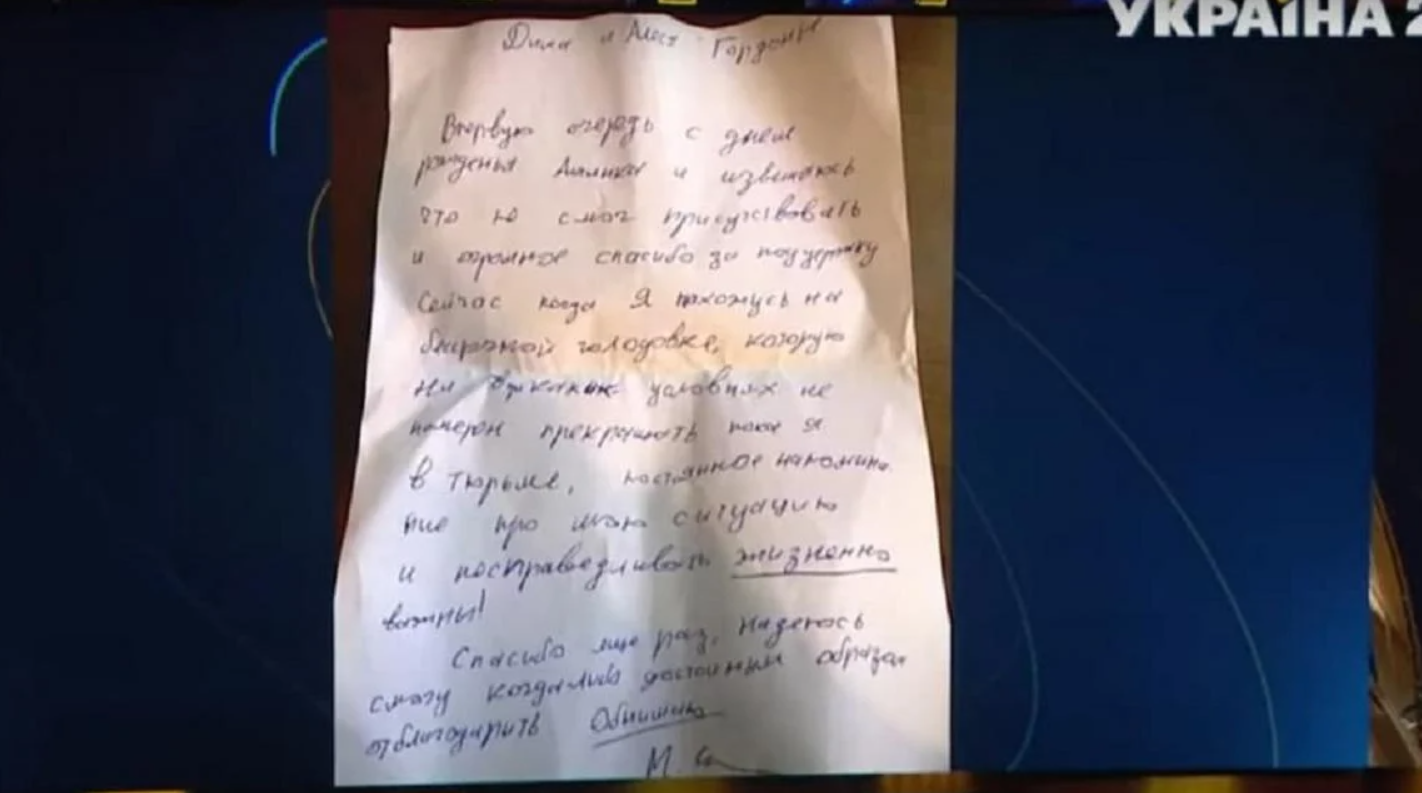 УКРАЇНА 2
Дима и Алеся Гордоны
Впервую очередь с днем
рожденья Алынки и извеняюсь
что не смог присутствовать
и огромное спасибо за поддержку
Сейчас когда Я нахожусь на
безсрочной голодовке, которую
ни условиях не
намерен прекрошать пока я
в тюрьме, постоянное напомина
ние про мою ситуацию
и несправедливость жизненно
важны!
Спасибо еще раз, надеюсь
смогу когдалибо достойным образом
отблогодарить Обнимаю
М